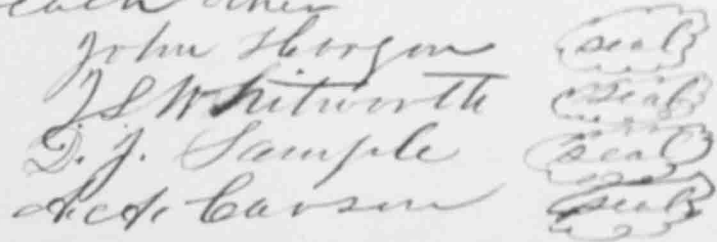 each other
John Horgan (seal)
J S Whitworth (seal)
D. J. Sample (seal)
A. A. Carson (seal)